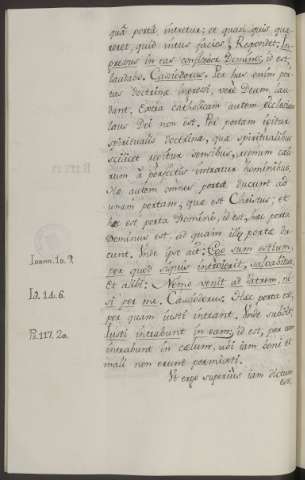 quâ portâ intretur; et quasi quis quæ-
reret, quid intus facies? Respondet; In-
gressus in eas confitebor Domino, id est,
laudabo. Cassiodorus, Per has enim por-
tas doctrinæ ingressi, verè Deum lau-
dant. Extra catholicam autem Ecclesiam
laus Dei non est. Per portam igitur
spiritualis doctrinæ, quæ spiritualibus
scilicet aperitur sensibus, regnum cælo-
rum à perfectis intratur hominibus.
Hæ autem omnes portæ ducunt ad
unam portam, quæ est Christus; et
hæc est porta Domini, id est, hæc porta
Dominus est, ad quam illæ portæ du-
cunt. Unde ipse ait; Ego sum ostium,
per quod siquis introierit, salvabitur.
Et alibi; Nemo venit ad Patrem, ni-
si per me. Cassiodorus: Hæc porta est,
per quam iusti intrant. Unde subdit;
Iusti intrabunt in eam; id est, per eam
intrabunt in cælum, ubi iam boni et
mali non erunt permixti.
Ut ergo superiùs iam dictum
est,
Ioann. 10. 9.
Id. 14. 6.
Ps. 117. 20.